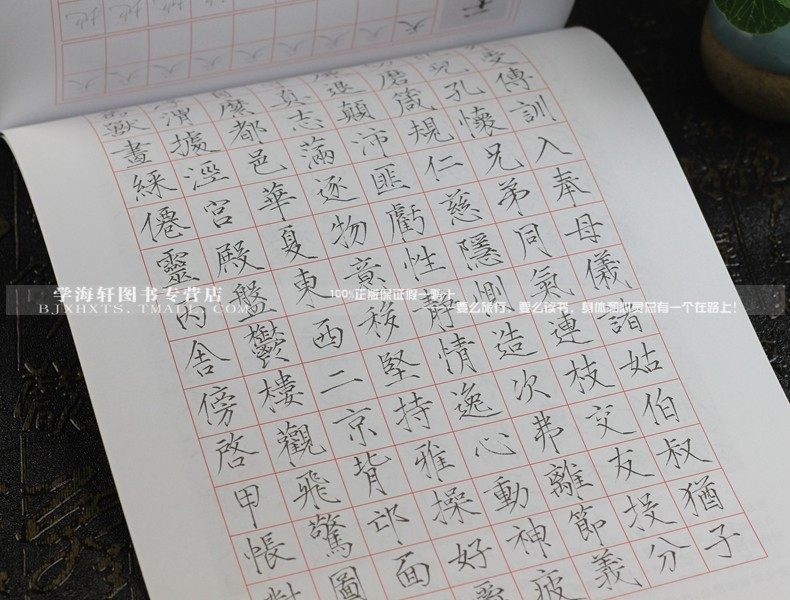 受傅訓入奉母儀諸姑伯叔猶子
兒孔懷兄弟同氣連枝交友投分
磨箴規仁慈隱惻造次弗離節義
退顛沛匪虧性靜情逸心動神疲
真志滿逐物意移堅持雅操好爵
縻都邑華夏東西二京背邙面
渭據涇宮殿盤鬱樓觀飛驚圖
獸畫綵僊靈丙舍傍啓甲帳對
学海轩图书专营店
BJXHXTS.TMALL.COM
100%正版保证假一赔十
要么旅行，要么读书，身体和灵魂总有一个在路上！